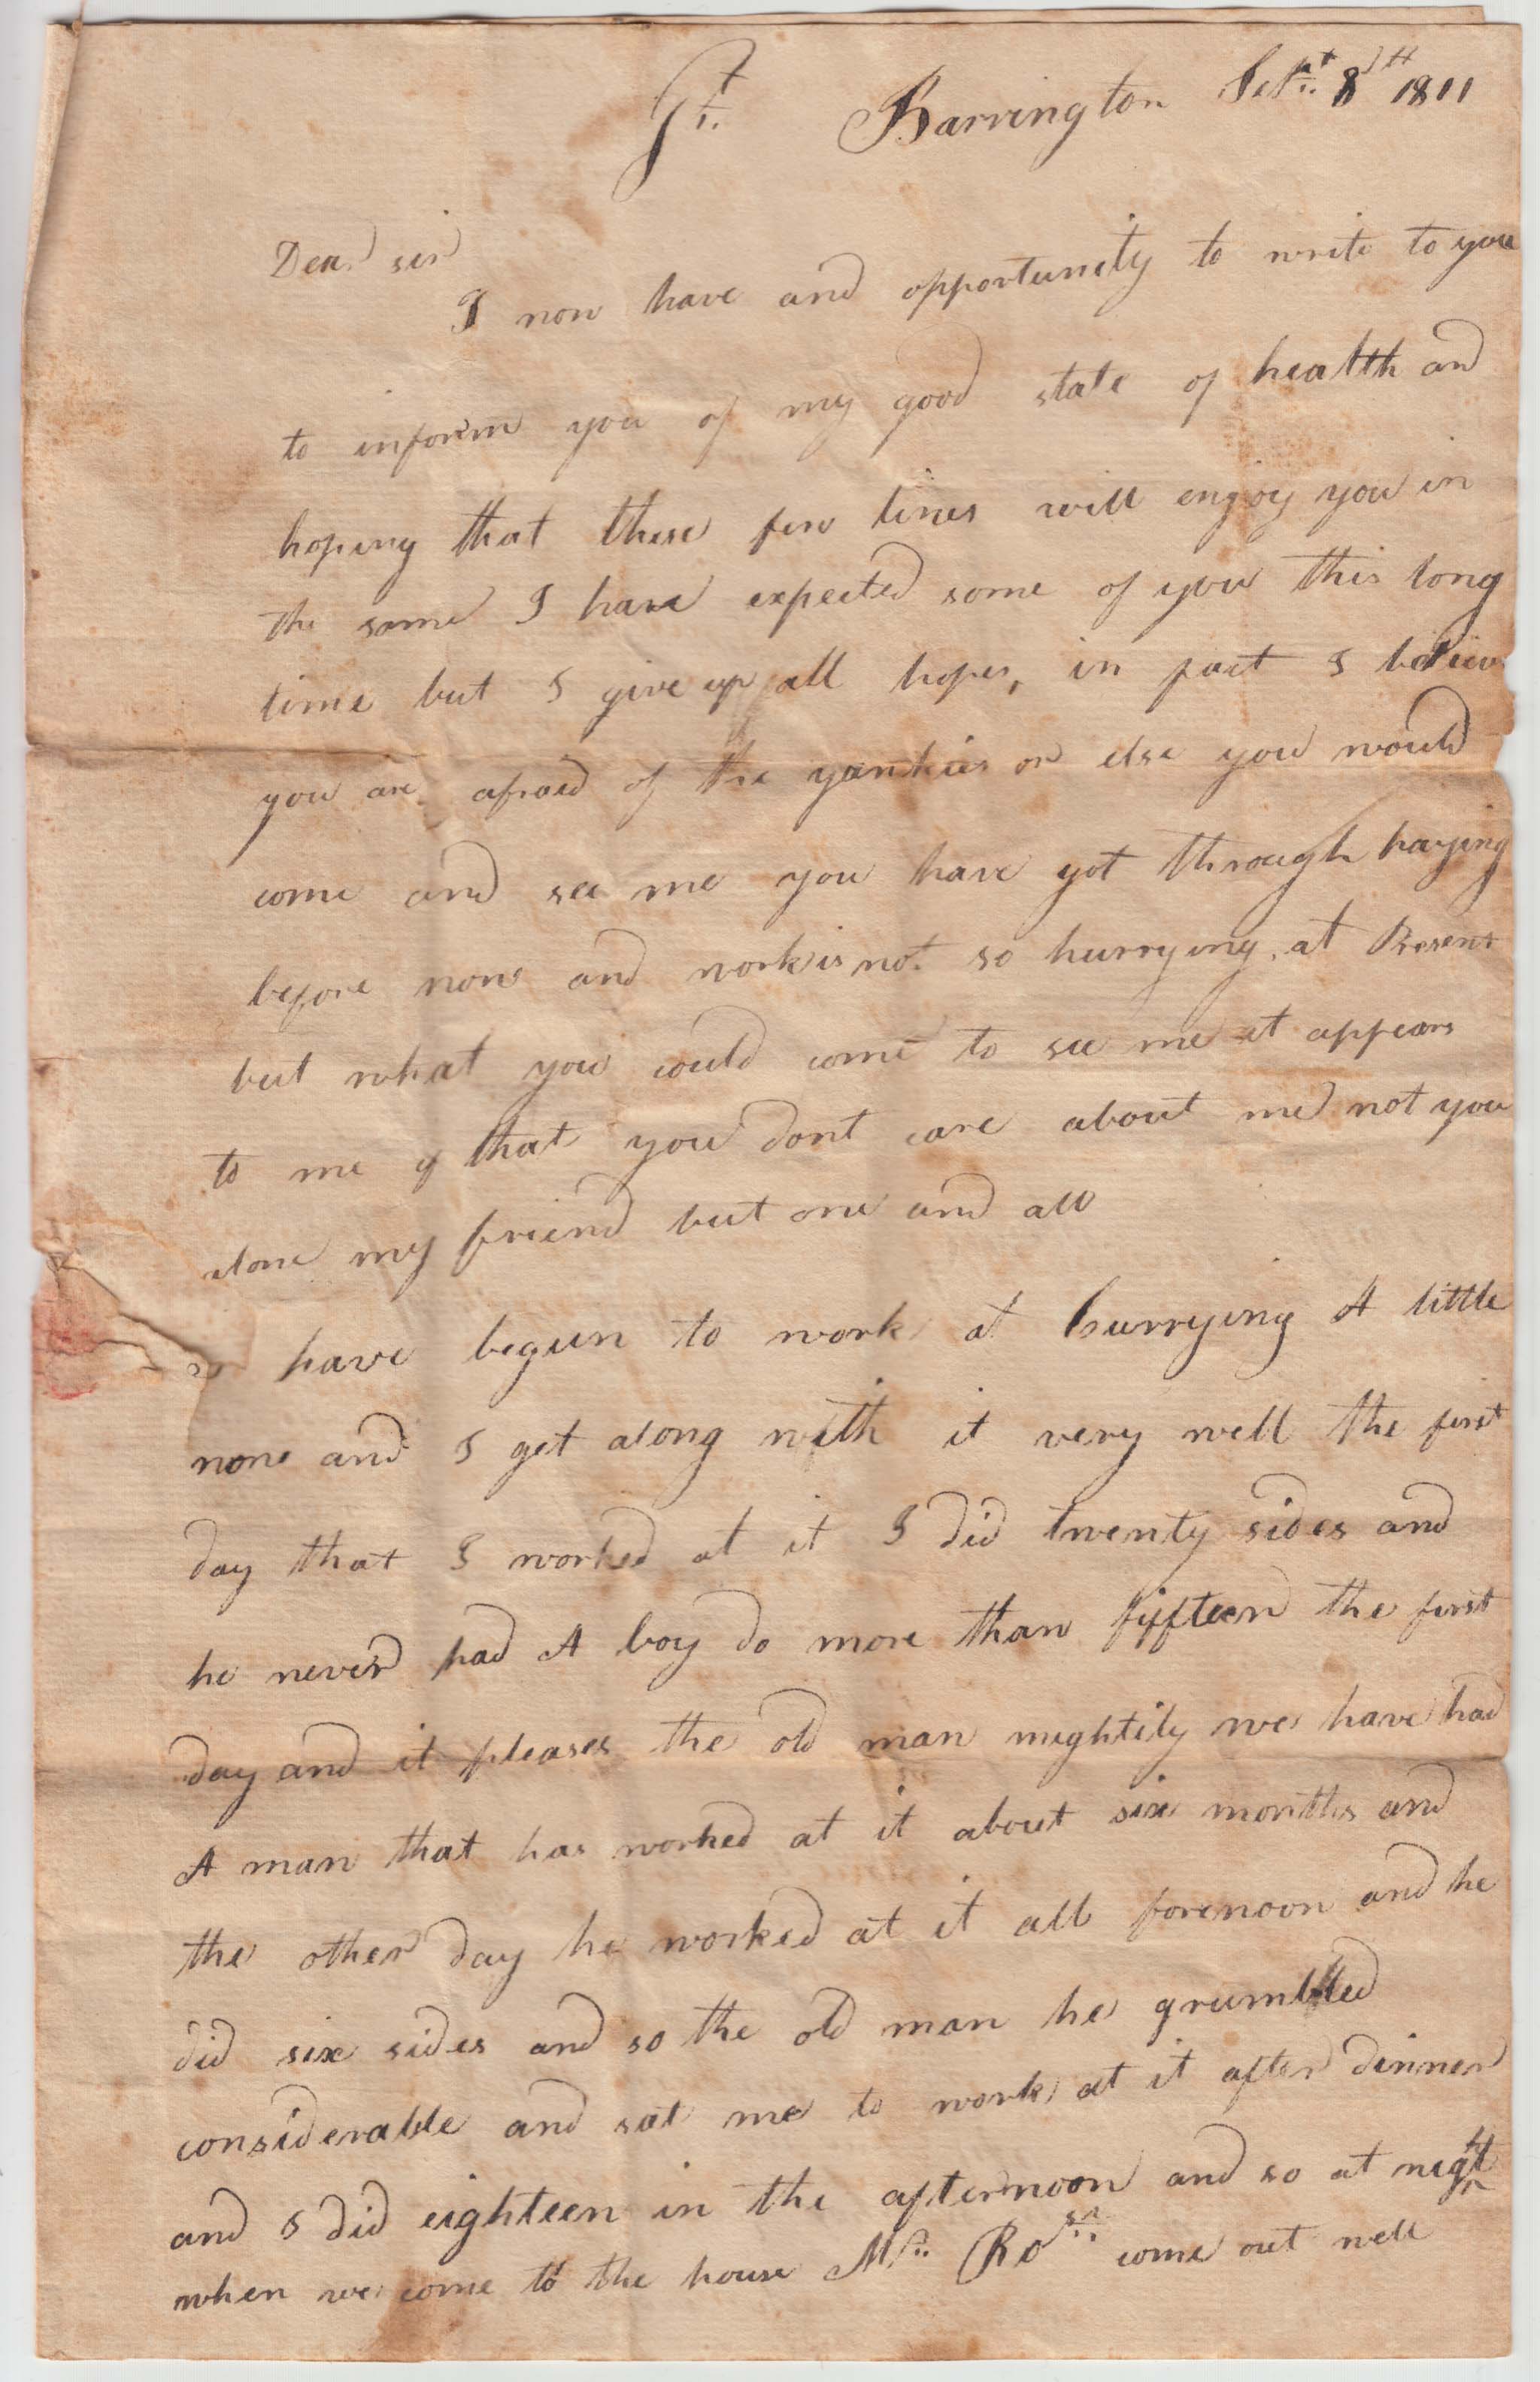 Gt. Barrington Sept. 8th 1811
Dear sir
I now have and opportunity to write to you
to inform you of my good state of health and
hoping that these few lines will enjoy you in
the same I have expected some of you this long
time but I give up all hopes, in fact I believe
you are afraid of the yankies or else you would
come and see me you have got through haying
before now and work is not so hurrying at Present
but what you could come to see me it appears
to me that you dont care about me not you
alone my friend but one and all
I have begun to work at currying A little
now and I get along with it very well the first
day that I worked at it I did twenty sides and
he never had A boy do more than fifteen the first
day and it pleases the old man mightily we have had
A man that has worked at it about six months and
the other day he worked at it all forenoon and he
did six sides and so the old man he grumbled
considerable and sat me to work at it after dinner
and I did eighteen in the afternoon and so at night
when we come to the house Mr. come out well